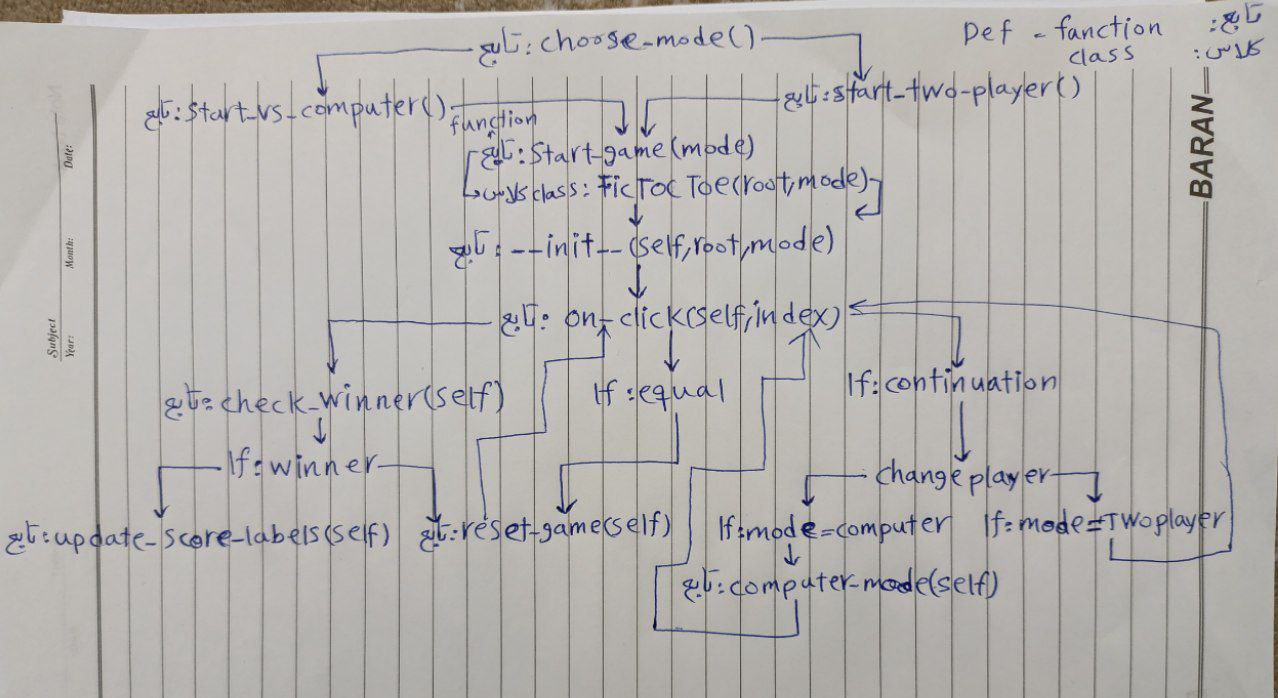 Def - fanction تابع:
class کلاس:
تابع: choose-mode()
تابع: start-vs-computer()
تابع: start-two-player()
function
تابع: Start-game(mode)
کلاس class: TicTOC Toe(root,mode)
تابع: --init--(self,root,mode)
تابع: on-click(self,index)
تابع: check-winner(self)
If: equal
If: continuation
If: winner
change player
تابع: update-score-labels(self)
تابع: reset-game(self)
If: mode=computer
If: mode=TWO player
تابع: computer-mode(self)
BARAN
Subject
Year:
Month:
Date: